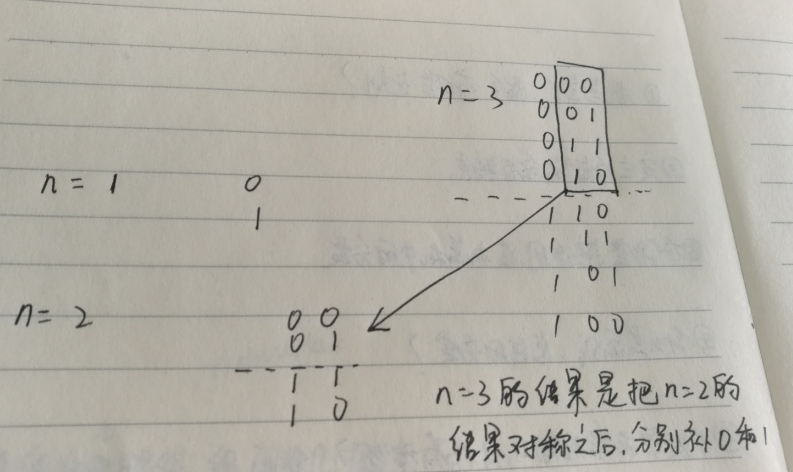 n = 1
0
1
n = 2
0 0
0 1
1 1
1 0
n = 3
0 0 0
0 0 1
0 1 1
0 1 0
1 1 0
1 1 1
1 0 1
1 0 0
n=3的结果是把n=2的
结果对称之后,分别补0和1